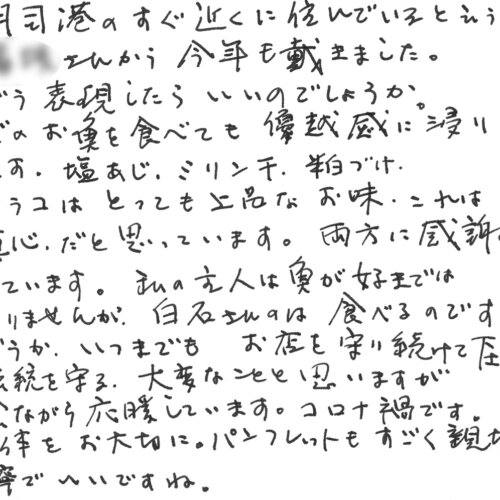 司港のすぐ近くに住んでいるという
さんから今年も戴きました。
う表現したらいいのでしょうか。
のお魚を食べても優越感に浸り
す。塩あじ、ミリン干、粕づけ、
ラコはとっても上品なお味、これは
心、だと思っています。両方に感謝
ています。私の主人は魚が好きでは
りませんが、白石さんのは食べるのです
うか、いつまでも お店を守り続けて下
統を守る、大変なことと思いますが
ながら応援しています。コロナ禍です。
体をお大切に。パンフレットもすごく親切
寧でいいですね。